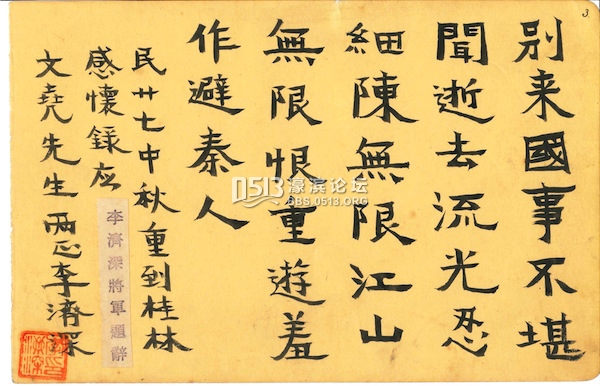 別来國事不堪
聞逝去流光忍
細陳無限江山
無限恨重遊羞
作避秦人
民廿七中秋重到桂林
感懷録應
文堯先生兩正李濟深
李濟深將軍題辭
0513 濠滨论坛
BBS.0513.ORG
3